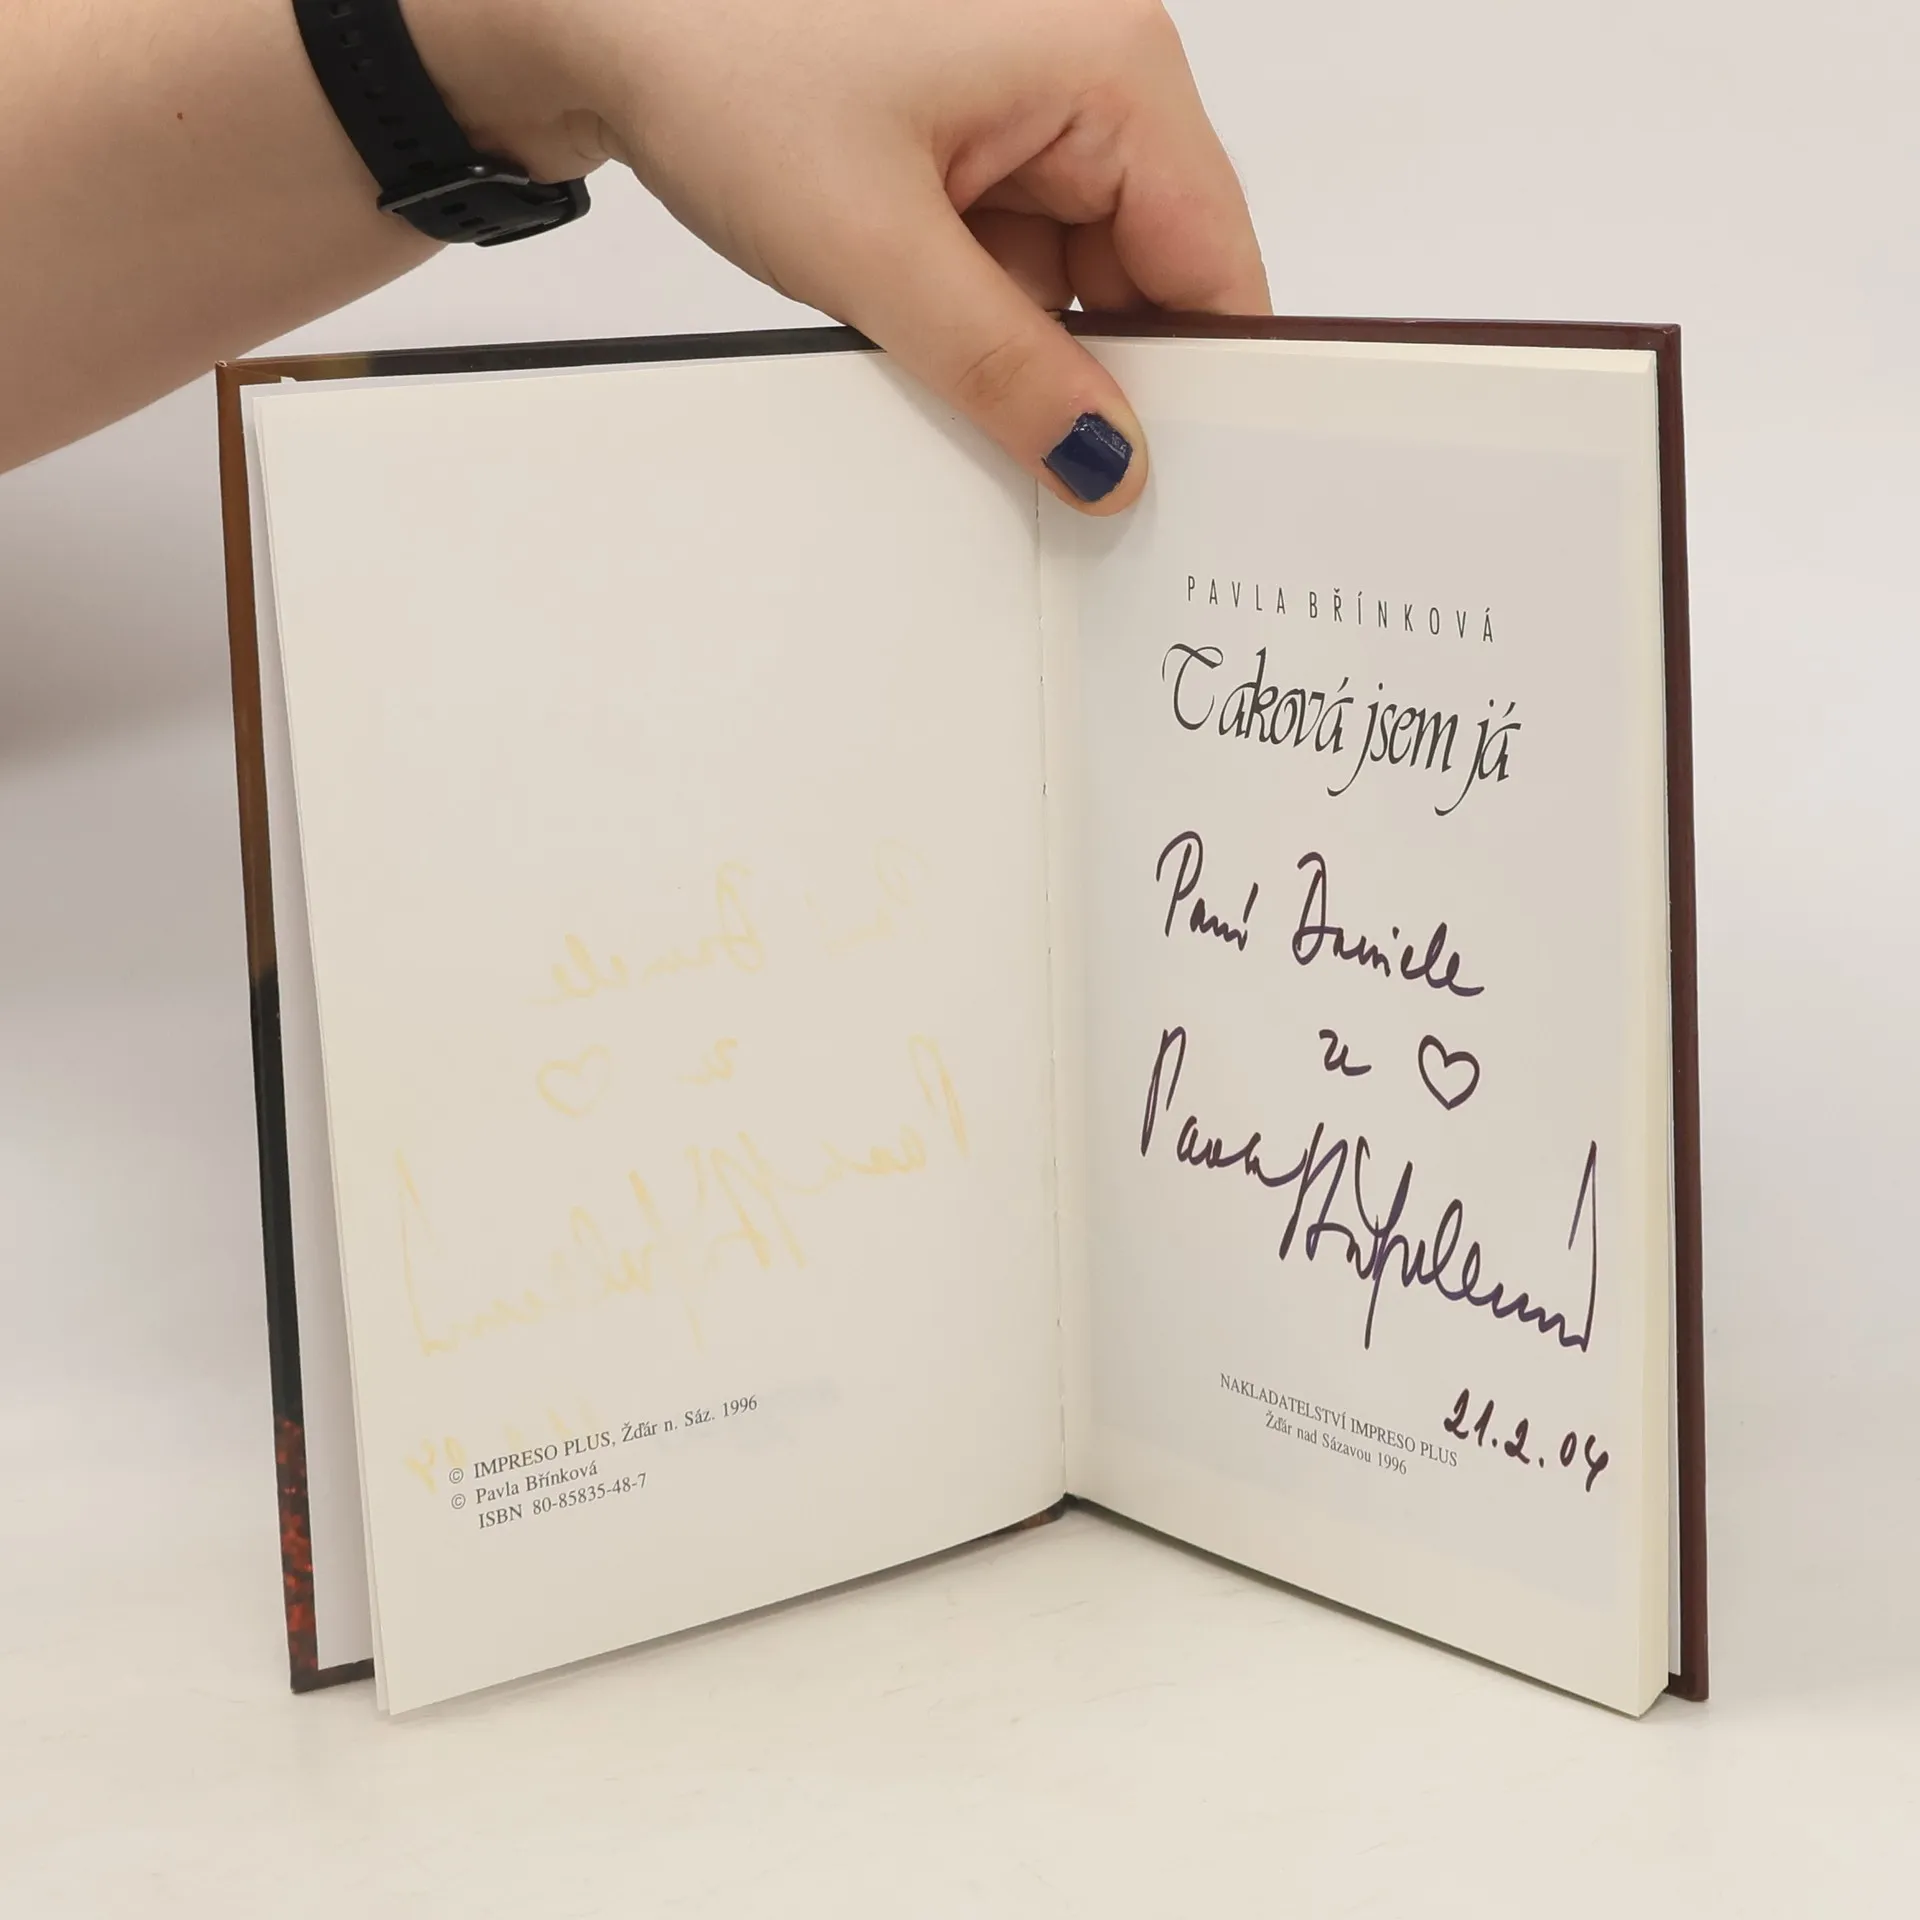 © IMPRESO PLUS, Žďár n. Sáz. 1996
© Pavla Břínková
ISBN 80-85835-48-7
PAVLA BŘÍNKOVÁ
Taková jsem já
Paní Daniele
ze ♡
Pavla
NAKLADATELSTVÍ IMPRESO PLUS
Žďár nad Sázavou 1996
21.2.04